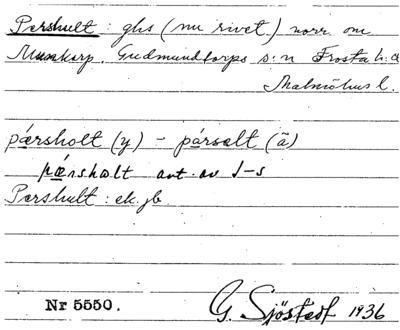 Pershult: ghs (nu rivet) norr om
Munkarp. Gudmundtorps s:n Frosta h:d
Malmöhus l.
pærsholt (y) - pársalt (ä)
pǽrshalt ant. av J-s
Pershult: ek. jb.
Nr 5550. G. Sjöstedt 1936